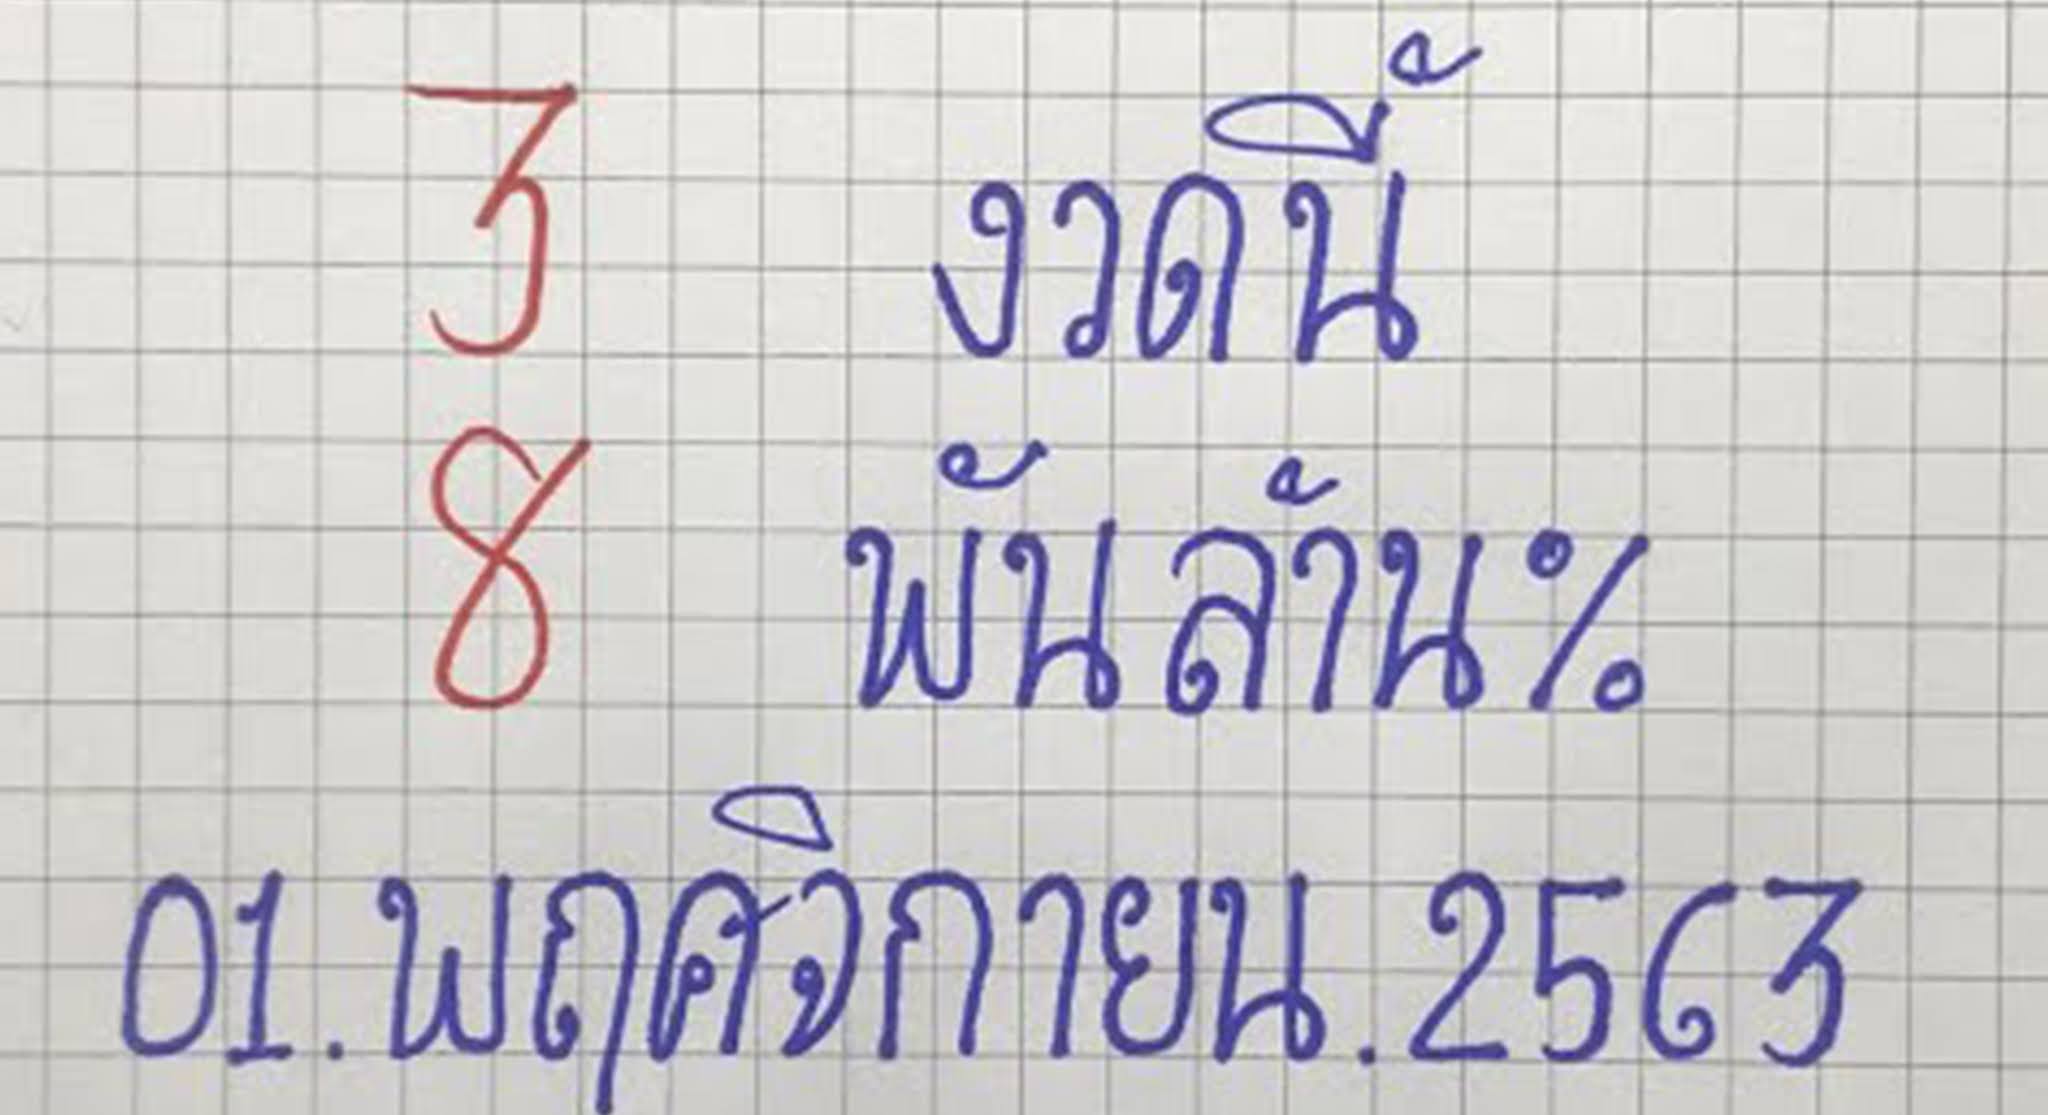 3 งวดนี้
8 พันล้าน%
01.พฤศจิกายน.2563